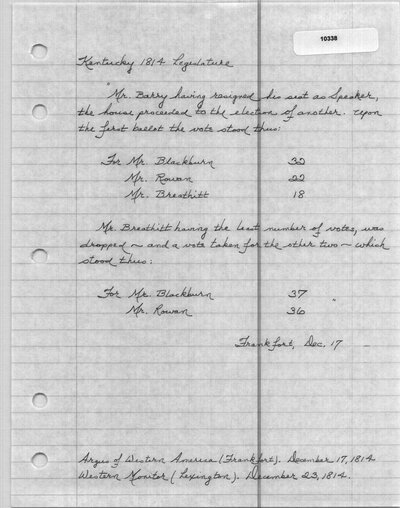 10338
Kentucky 1814 Legislature
"Mr. Barry having resigned his seat as Speaker,
the house proceeded to the election of another. Upon
the first ballot the vote stood thus:
For Mr. Blackburn 32
Mr. Rowan 22
Mr. Breathitt 18
Mr. Breathitt having the least number of votes, was
dropped ~ and a vote taken for the other two ~ which
stood thus:
For Mr. Blackburn 37
Mr. Rowan 36 "
Frankfort, Dec. 17
Argus of Western America (Frankfort). December 17, 1814
Western Monitor (Lexington). December 23, 1814.